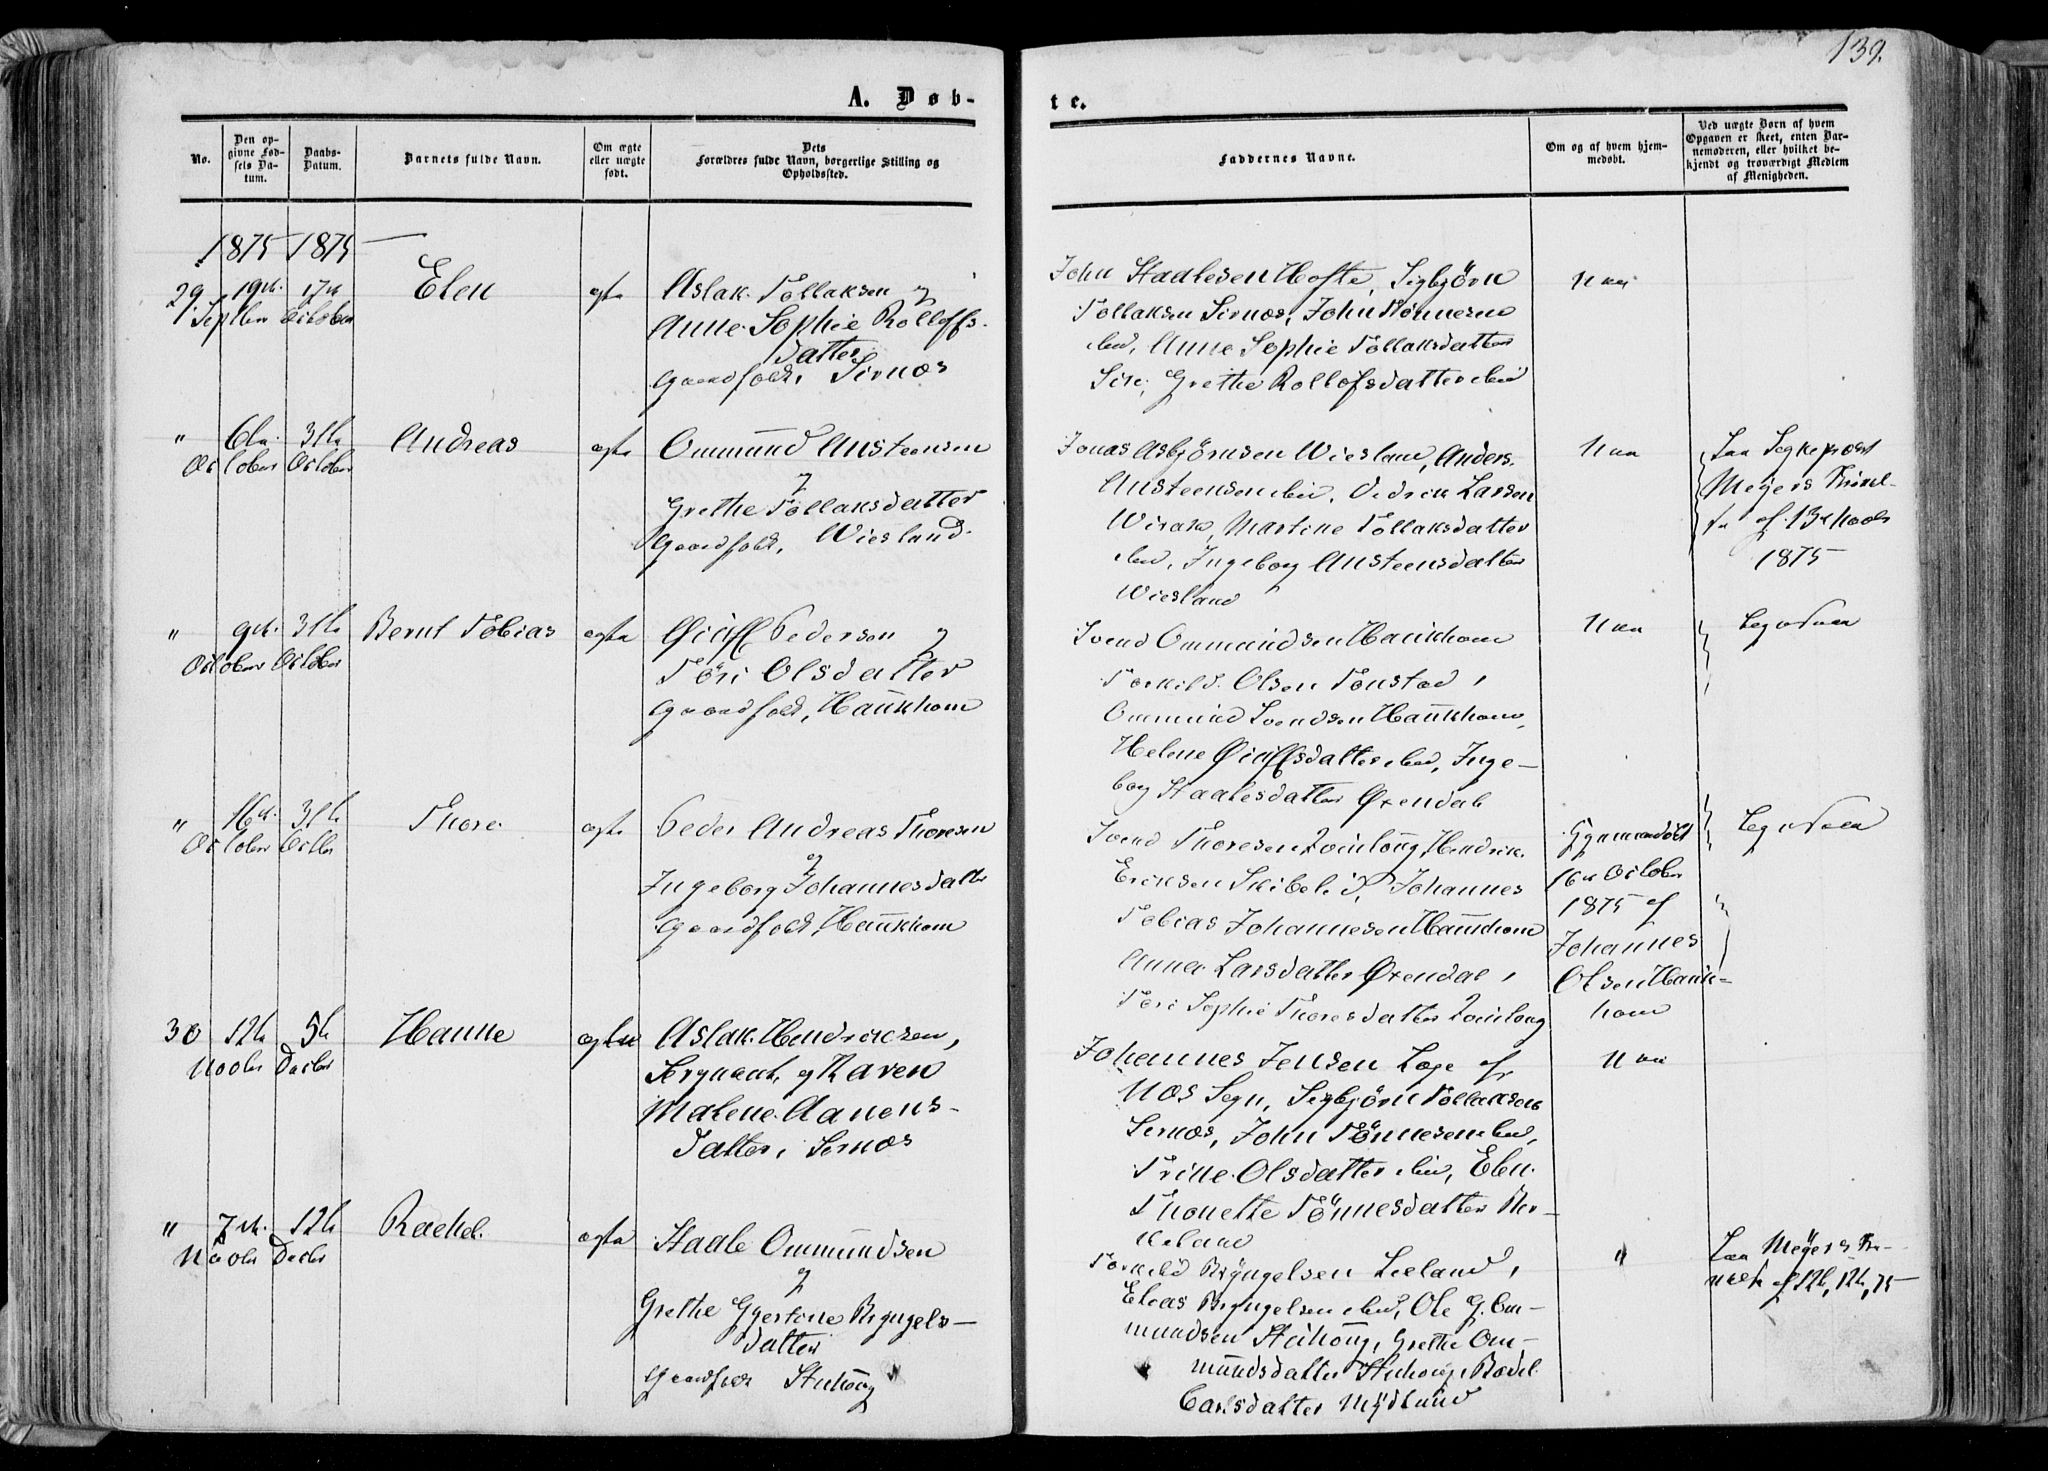 139.
A. Døb-
te.
No.
Den op-
givne Fød-
sels Da-
tum.
Daabs-
Datum.
Barnets fulde Navn.
Om ægte
eller uægte
født.
Dets
Forældres fulde Navn, borgerlige Stilling og
Opholdssted.
Faddernes Navne.
Om og af hvem hjem-
medøbt.
Ved uægte Børn af hvem
Opgaven er skeet, enten Bar-
nemoderen, eller hvilket be-
kjendt og troværdigt Medlem
af Menigheden.
1875 1875
29 19de 17de
Septbr October
Elen
ægte
Aslak Tollaksen og
Anne Sophie Rolloffs-
datter
Gaardfolk, Sirnæs
John Staalesen Hofte, Sigbjörn
Tollaksen Sirnæs, John Tönnesen
ibid, Anne Sophie Tollaksdatter
Sire, Grethe Rollofsdatter ibid
Nei
" 6te 31te
October October
Andreas
ægte
Ommund Austeensen
og
Grethe Tollaksdatter
Gaardfolk, Wiesland.
Jonas Asbjörnsen Wiesland, Anders
Austeensen ibid, Didrik Larsen
Wirak, Martine Tollaksdatter
ibid, Ingeborg Austeensdatter
Wiesland
Nei
Meyers
af 13de Novbr
1875
" 9de 31te
October October
Bernt Tobias
ægte
Pedersen og
Töri Olsdatter
Gaardfolk, Haukhom
Svend Ommundsen Haukhom
Torkild Olsen Tonstad,
Ommund Svendsen Haukhom,
Helene ibid, Inge-
borg Staalesdatter Øxendal
Nei
" 16de 31te
October Octbr
Thore
ægte
Peder Andreas Thoresen
og
Ingeborg Johannesdatter
Gaardfolk, Haukhom
Svend Thoresen Qvinlaug, Hendrik
Eriksen Skibeli, Johannes
Tobias Johannesen Haukhom
Anne Larsdatter Øxendal,
Tori Sophie Thoresdatter Qvinlaug
Hjemmedöbt
16de October
1875 af
Johannes
Olsen Hauk-
hom
30 12te 5te
Novbr Decbr
Hanne
ægte
Aslak Hendriksen,
Sergeant, og Karen
Malene Aanens-
datter, Sirnæs
Johannes Jensen Løge af
Næs Sogn, Sigbjörn Tollaksen
Sirnæs, John Tönnesen ibid,
Trine Olsdatter ibid, Elen
Thonette Tönnesdatter Ber-
keland
Nei
" 7de 12te
Novbr Decbr
Rachel
ægte
Staale Ommundsen
og
Grethe Gjertine Bryngels-
datter
Gaardfolk Stuhöug
Torkild Bryngelsen Lieland,
Elias Bryngelsen ibid, Ole G. Om-
mundsen Stuhöug, Grethe Om-
mundsdatter Stuhöug, Bodel
Carlsdatter Mydland
"
Meyers
af 12te, 12te, 75